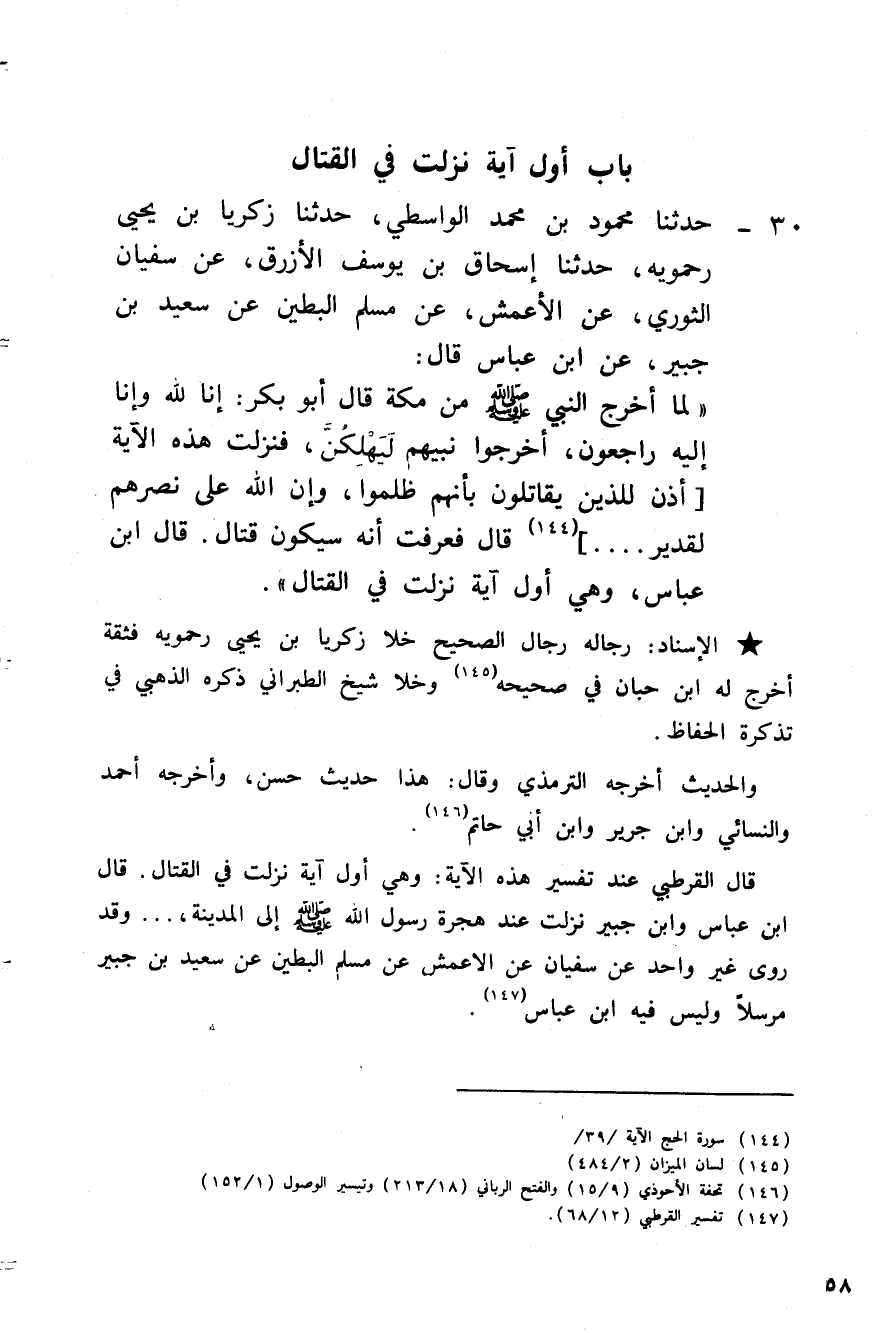 باب أول آية نزلت في القتال
٣٠ - حدثنا محمود بن محمد الواسطي، حدثنا زكريا بن يحيى
رحمويه، حدثنا إسحاق بن يوسف الأزرق، عن سفيان
الثوري، عن الأعمش، عن مسلم البطين عن سعيد بن
جبير، عن ابن عباس قال:
« لما أخرج النبي ﷺ من مكة قال أبو بكر: إنا لله وإنا
إليه راجعون، أخرجوا نبيهم لَيَهْلِكُنَّ، فنزلت هذه الآية
[ أذن للذين يقاتلون بأنهم ظلموا، وإن الله على نصرهم
لقدير....](١٤٤) قال فعرفت أنه سيكون قتال. قال ابن
عباس، وهي أول آية نزلت في القتال».
★ الإسناد: رجاله رجال الصحيح خلا زكريا بن يحيى رحمويه فثقة
أخرج له ابن حبان في صحيحه(١٤٥) وخلا شيخ الطبراني ذكره الذهبي في
تذكرة الحفاظ.
والحديث أخرجه الترمذي وقال: هذا حديث حسن، وأخرجه أحمد
والنسائي وابن جرير وابن أبي حاتم(١٤٦).
قال القرطبي عند تفسير هذه الآية: وهي أول آية نزلت في القتال. قال
ابن عباس وابن جبير نزلت عند هجرة رسول الله ﷺ إلى المدينة،... وقد
روى غير واحد عن سفيان عن الاعمش عن مسلم البطين عن سعيد بن جبير
مرسلاً وليس فيه ابن عباس(١٤٧).
(١٤٤) سورة الحج الآية /٣٩/
(١٤٥) لسان الميزان (٤٨٤/٢)
(١٤٦) تحفة الأحوذي (١٥/٩) والفتح الرباني (٢١٣/١٨) وتيسير الوصول (١٥٢/١)
(١٤٧) تفسير القرطبي (٦٨/١٢).
٥٨